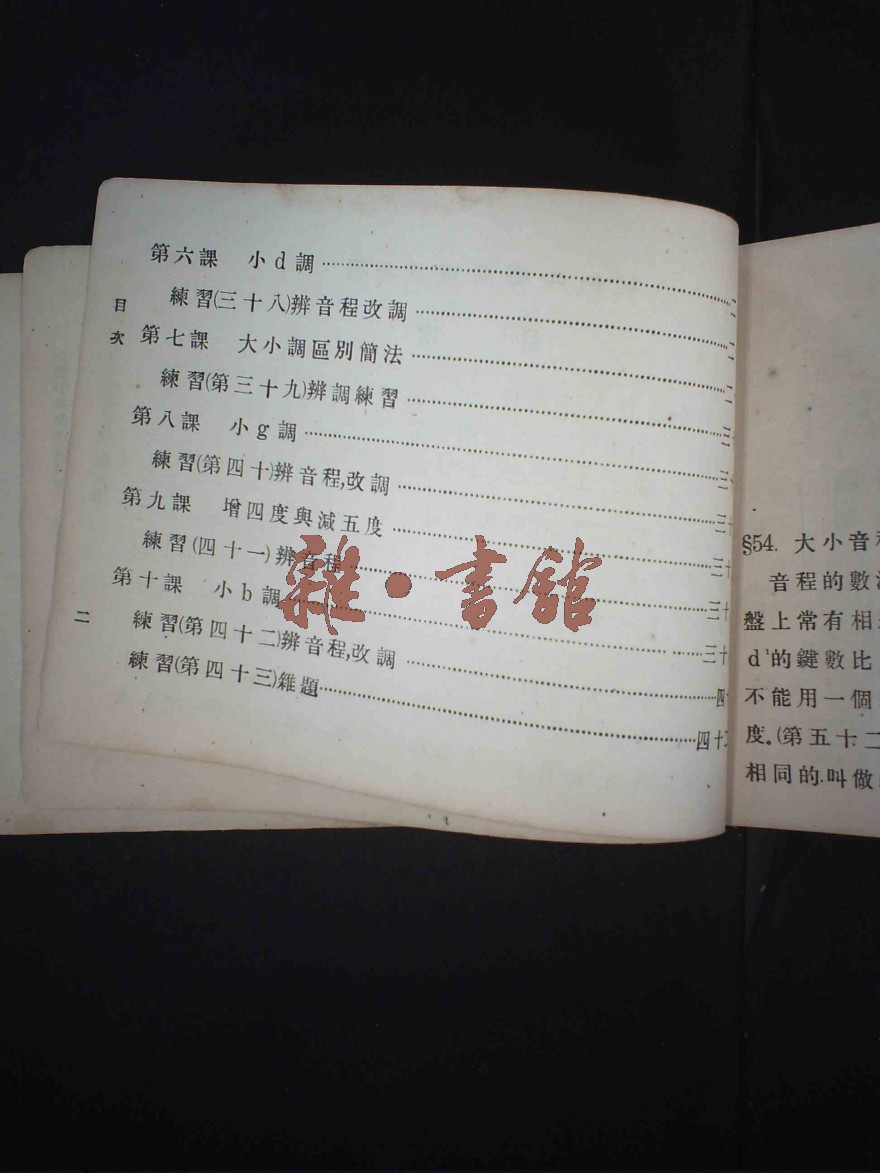 第六課 小d調
練習(三十八)辨音程改調
第七課 大小調區別簡法
練習(第三十九)辨調練習
第八課 小g調
練習(第四十)辨音程,改調
第九課 增四度與減五度
練習(四十一)辨音程
第十課 小b調
練習(第四十二)辨音程,改調
練習(第四十三)雜題
目次
二
雜·書舘
§54. 大小音
音程的數
盤上常有相
d¹的鍵數比
不能用一個
度。(第五十二
相同的.叫做